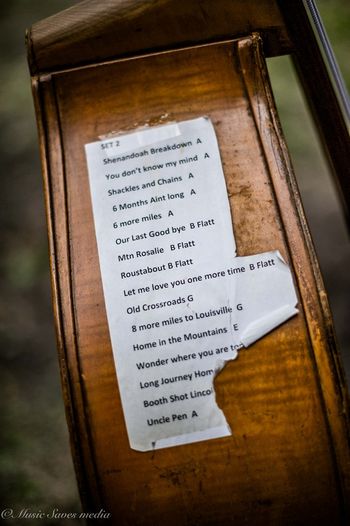 SET 2
Shenandoah Breakdown A
You don't know my mind A
Shackles and Chains A
6 Months Aint long A
6 more miles A
Our Last Good bye B Flatt
Mtn Rosalie B Flatt
Roustabout B Flatt
Let me love you one more time B Flatt
Old Crossroads G
8 more miles to Louisville G
Home in the Mountains E
Wonder where you are
Long Journey Hom
Booth Shot Linco
Uncle Pen A
©Music Saves media